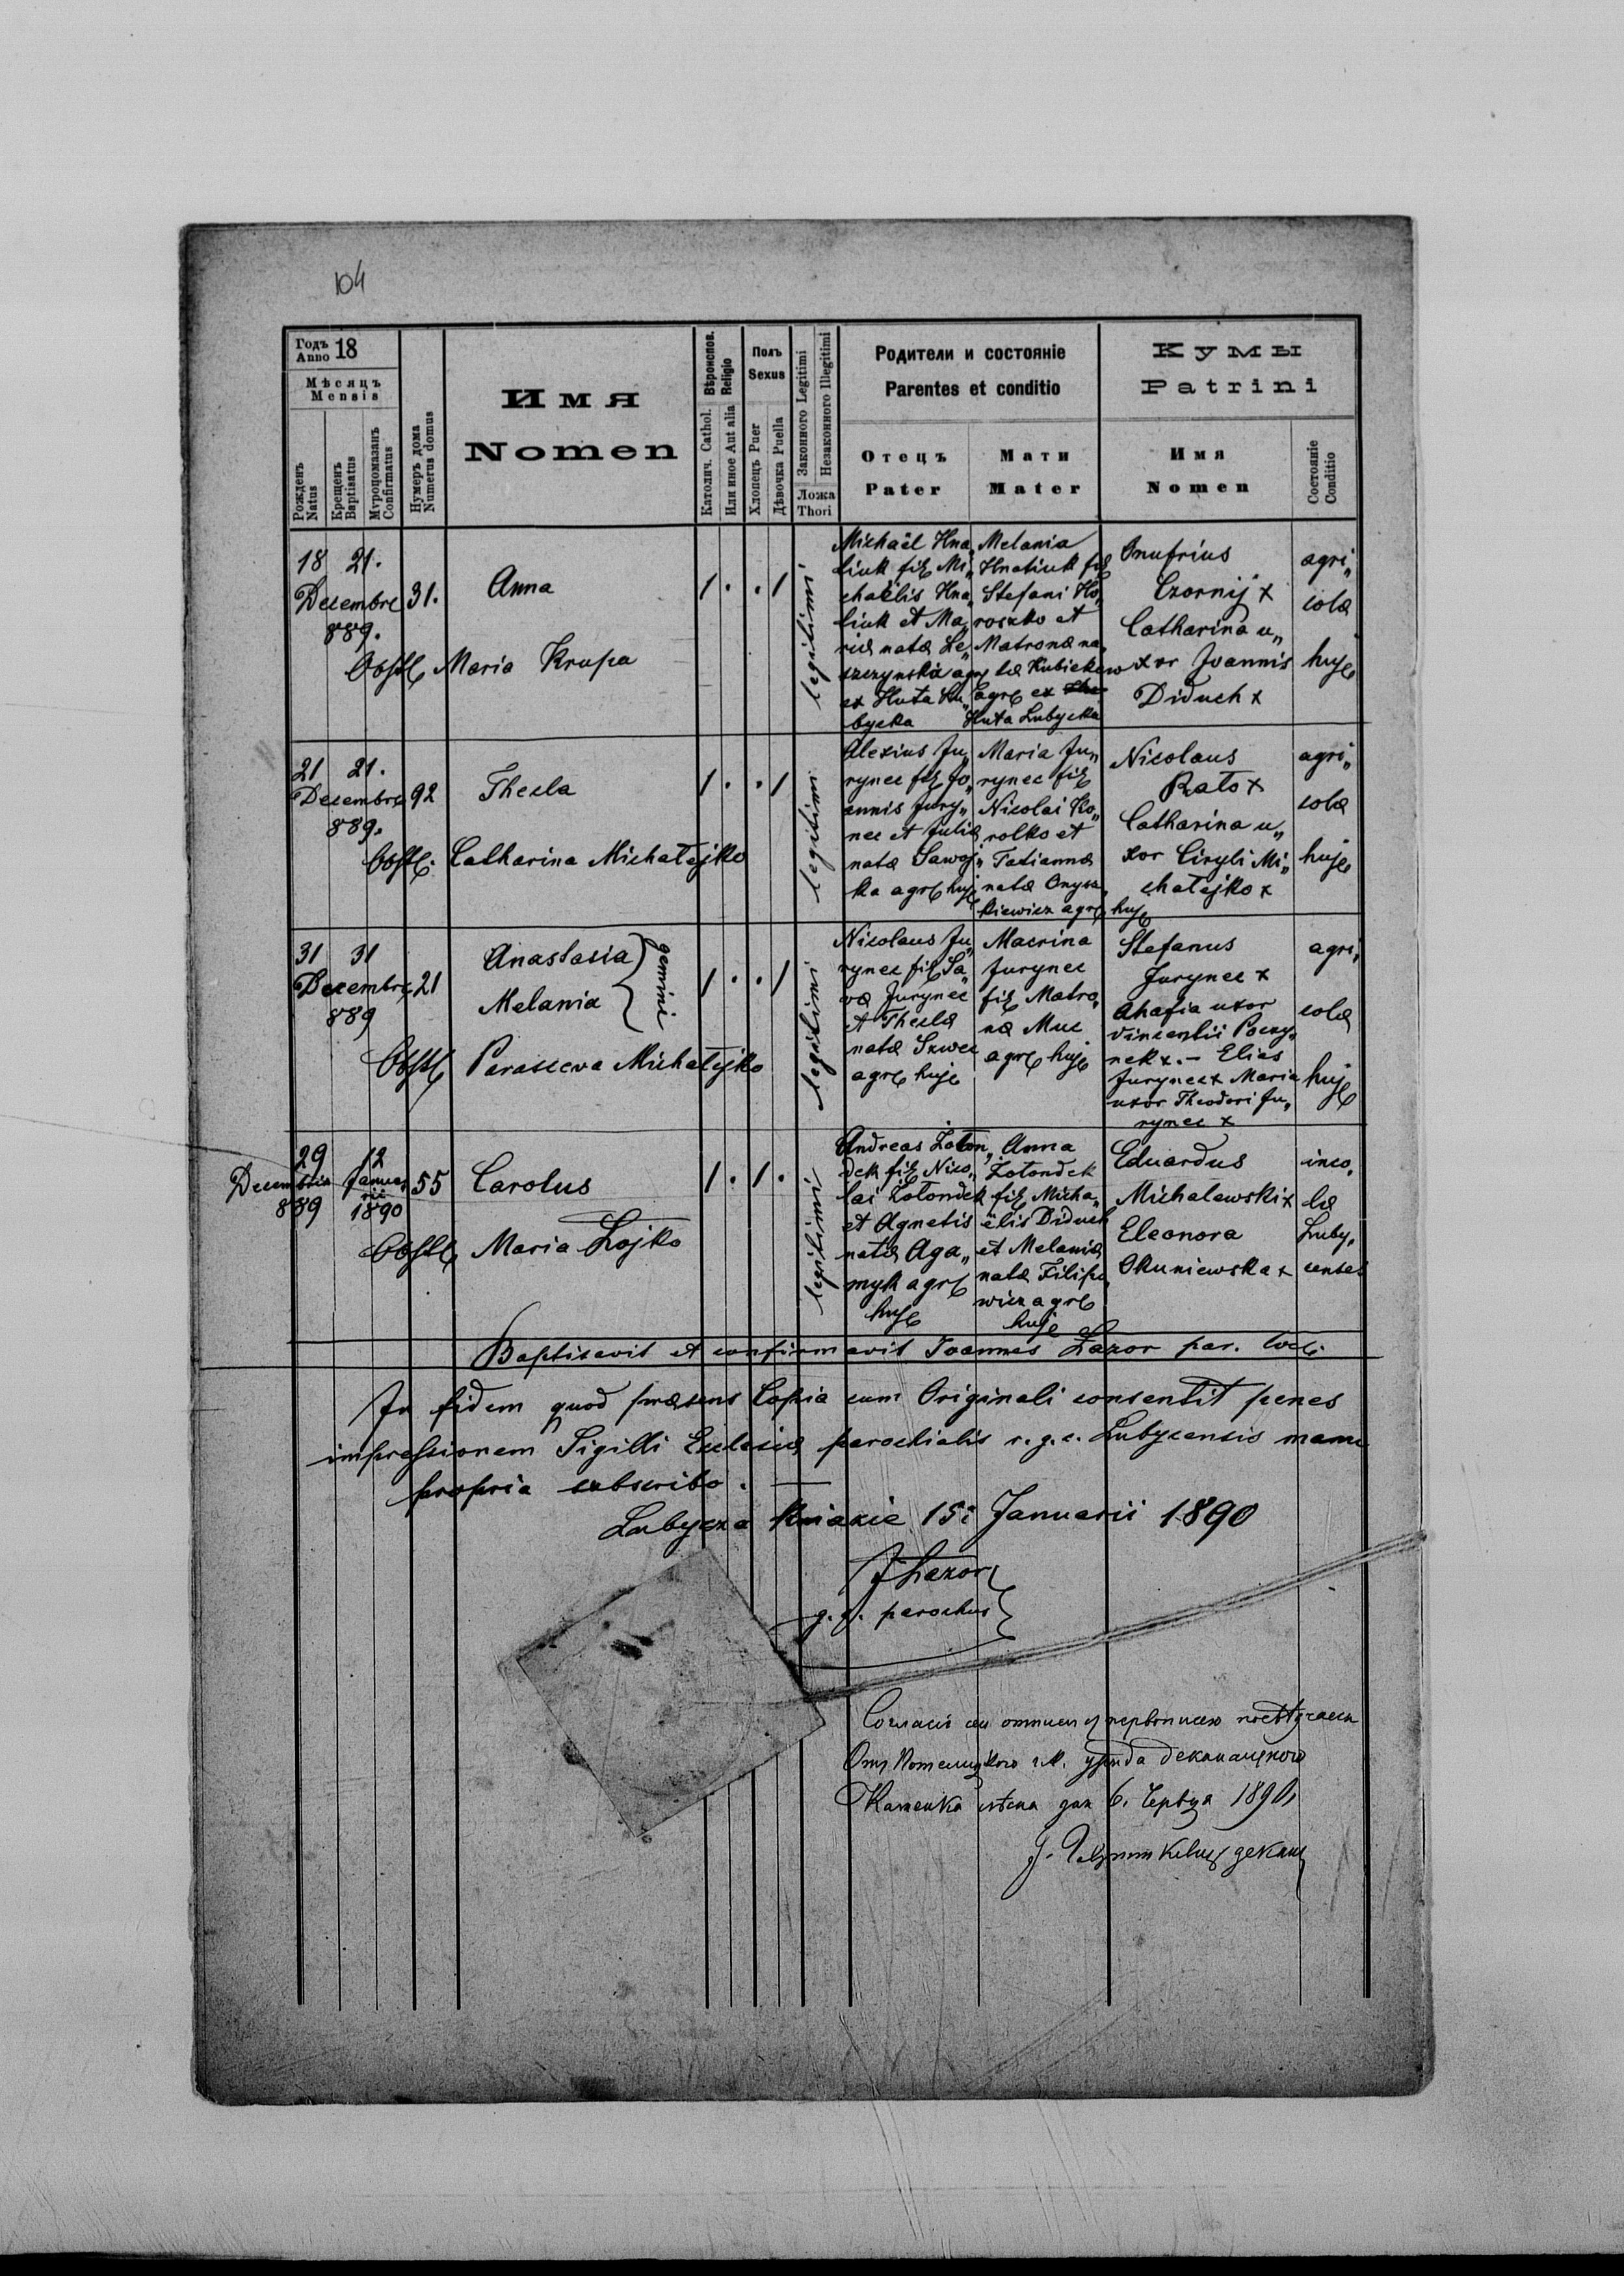 104
Годъ
Anno 18
Мѣсяцъ
Mensis
Рожденъ
Natus
Крещенъ
Baptisatus
Муропомазанъ
Confirmatus
Нумеръ дома
Numerus domus
Имя
Nomen
Вѣроиспов.
Religio
Католич. Cathol.
Или иное Aut alia
Полъ
Sexus
Хлопецъ Puer
Дѣвочка Puella
Законного Legitimi
Незаконного Illegitimi
Ложа
Thori
Родители и состояніе
Parentes et conditio
Отецъ
Pater
Мати
Mater
Кумы
Patrini
Имя
Nomen
Состояніе
Conditio
18 21.
Decembre
889.
31.
Anna
Obst. Maria Krupa
1 . . 1
legitimi
Michaël Hna„
tiuk fil. Mi„
chaëlis Hna„
tiuk et Ma„
riæ natæ Le„
szczynska agr.
ex Huta Lu„
bycka
Melania
Hnatiuk fil.
Stefani Ho„
roszko et
Matronæ na„
tæ Kubicka
agr. ex
Huta Lubycka
Onufrius
Czornij x
Catharina u„
xor Joannis
Diduch x
agri„
colæ
huj.
21 21.
Decembre
889.
92
Thecla
Obst. Catharina Michałejko
1 . . 1
legitimi
Alexius Ju„
rynec fil. Jo„
annis Jury„
nec et Juliæ
natæ Sawoj„
ka agr. huj.
Maria Ju„
rynec fil.
Nicolai Ko„
rolko et
Tatiannæ
natæ Onysz„
kiewicz agr. huj.
Nicolaus
Rato x
Catharina u„
xor Ciryli Mi„
chałejko x
agri„
colæ
huj.
31 31
Decembre
889
21
Anastasia
Melania
gemini
Obst. Parasceva Michałejko
1 . . 1
legitimi
Nicolaus Ju„
rynec fil. Sa„
væ Jurynec
et Theclæ
natæ Szwec
agr. huj.
Macrina
Jurynec
fil. Matro„
næ Muc
agr. huj.
Stefanus
Jurynec x
Ahafia uxor
Vincentii Poczy„
nek x. – Elias
Jurynec x Maria
uxor Theodori Ju„
rynec x
agri„
colæ
huj.
29
Decembris
889
12
Janua„
rii
1890
55
Carolus
Obst. Maria Łojko
1 . 1 .
legitimi
Andreas Żołon„
dek fil. Nico„
lai Żołondek
et Agnetis
natæ Aga„
myk agr.
huj.
Anna
Żołondek
fil. Micha„
ëlis Diduch
et Melaniæ
natæ Filipo„
wicz agr.
huj.
Eduardus
Michalewski x
Eleonora
Okuniewska x
inco„
læ
Luby„
censes
Baptisavit et confirmavit Joannes Łazor par. loci.
In fidem quod præsens Copia cum Originali consentit penes
impressionem Sigilli Ecclesiæ parochialis r. g. c. Lubycensis manu
propria subscribo.
Lubycza Kniazie 15i Januarii 1890
J Łazor
g. c. parochus
Отъ уряда деканацкого
Каменка дня 6. Червця 1890
деканъ